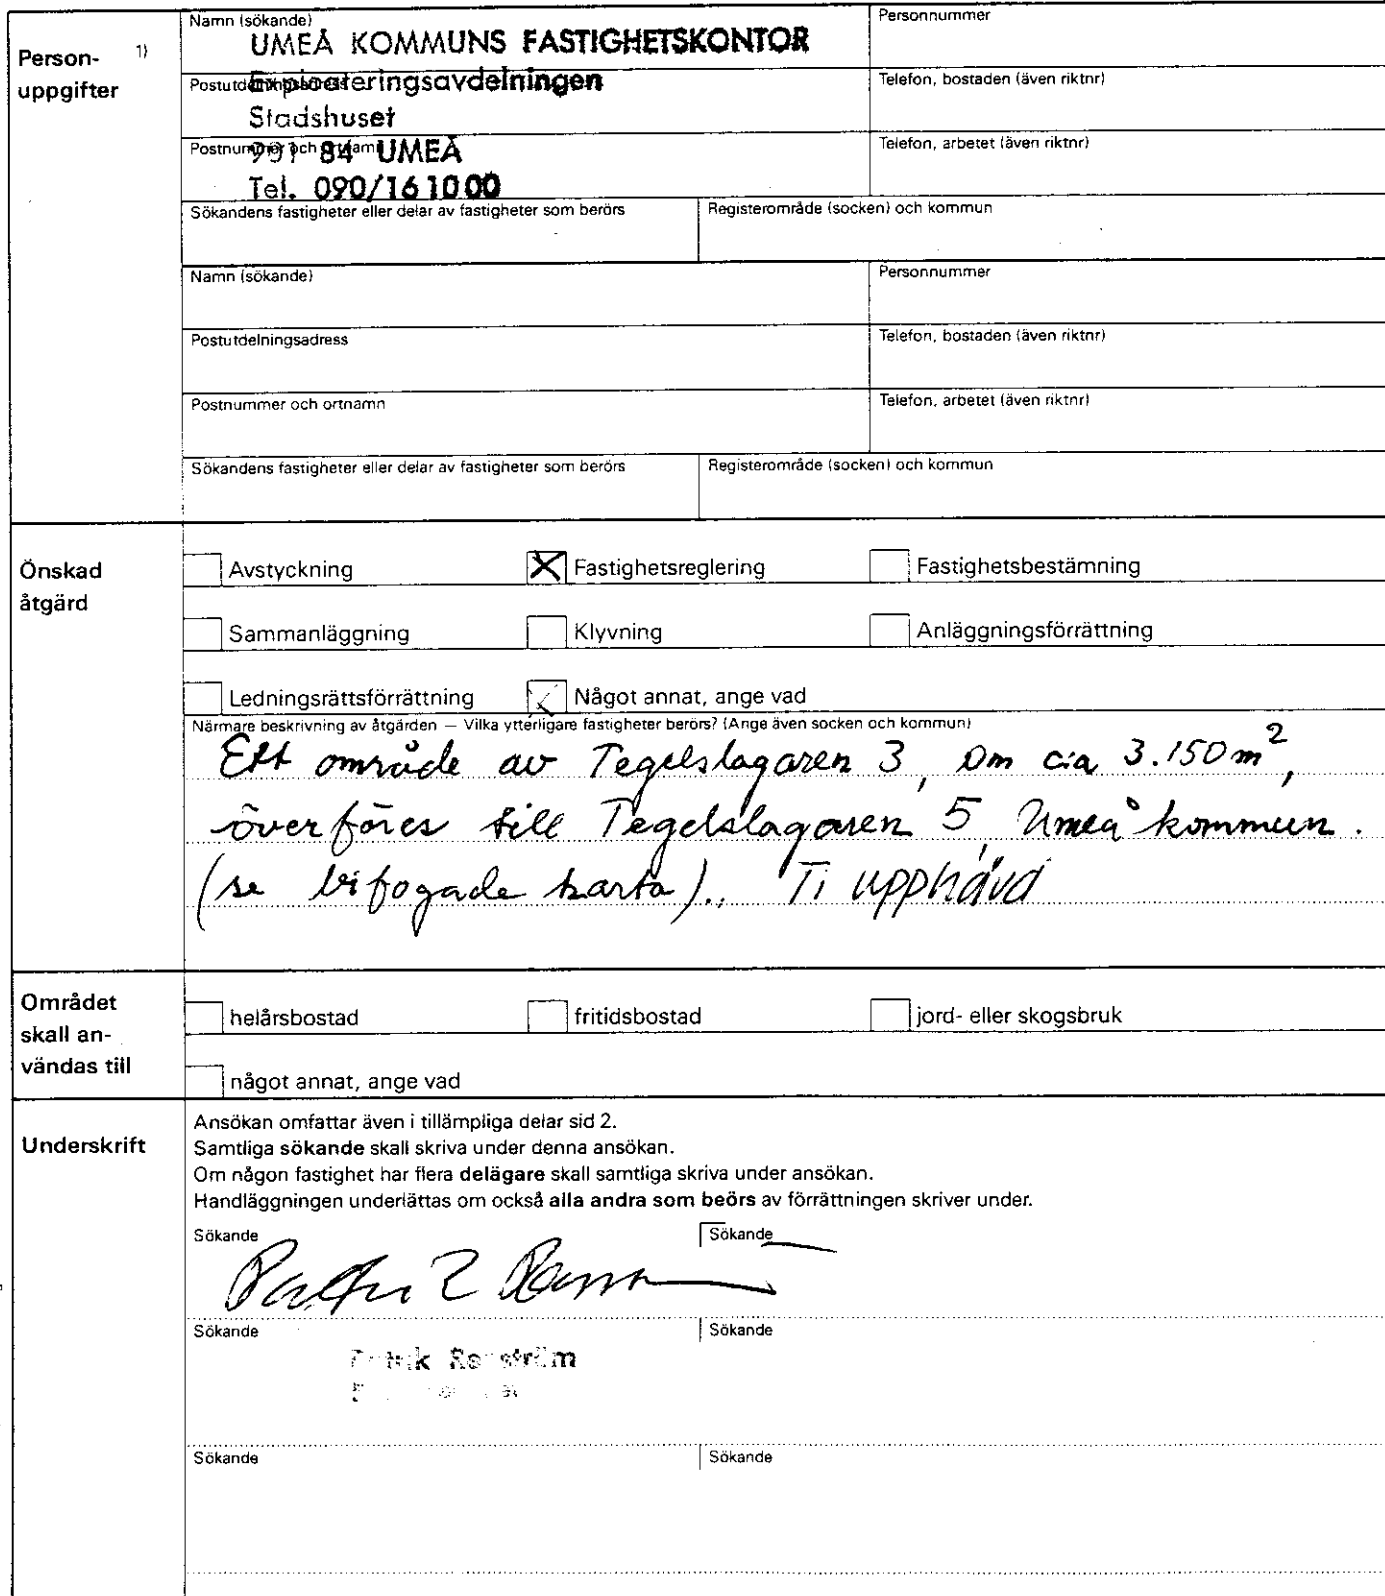 Person- 1)
uppgifter
Namn (sökande)
UMEÅ KOMMUNS FASTIGHETSKONTOR
Personnummer
Postutdelningsadress
Exploateringsavdelningen
Telefon, bostaden (även riktnr)
Stadshuset
Postnummer och ortnamn
901 84 UMEÅ
Telefon, arbetet (även riktnr)
Tel. 090/16 10 00
Sökandens fastigheter eller delar av fastigheter som berörs
Registerområde (socken) och kommun
Namn (sökande)
Personnummer
Postutdelningsadress
Telefon, bostaden (även riktnr)
Postnummer och ortnamn
Telefon, arbetet (även riktnr)
Sökandens fastigheter eller delar av fastigheter som berörs
Registerområde (socken) och kommun
Önskad
åtgärd
Avstyckning
Fastighetsreglering
Fastighetsbestämning
Sammanläggning
Klyvning
Anläggningsförrättning
Ledningsrättsförrättning
Något annat, ange vad
Närmare beskrivning av åtgärden — Vilka ytterligare fastigheter berörs? (Ange även socken och kommun)
Ett område av Tegelslagaren 3, om c:a 3.150 m²,
överföres till Tegelslagaren 5, Umeå kommun.
(se bifogade karta). Ti upphävd
Området
skall an-
vändas till
helårsbostad
fritidsbostad
jord- eller skogsbruk
något annat, ange vad
Underskrift
Ansökan omfattar även i tillämpliga delar sid 2.
Samtliga sökande skall skriva under denna ansökan.
Om någon fastighet har flera delägare skall samtliga skriva under ansökan.
Handläggningen underlättas om också alla andra som beörs av förrättningen skriver under.
Sökande
Sökande
Sökande
Sökande
Sökande
Sökande